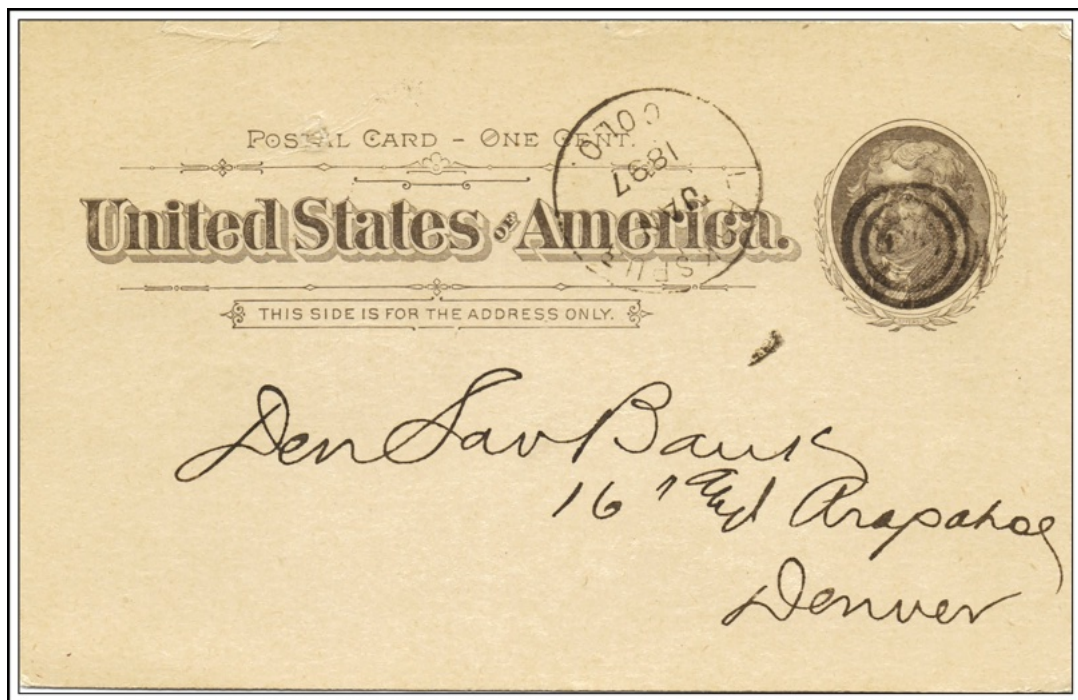 POSTAL CARD – ONE CENT.
United States OF America.
THIS SIDE IS FOR THE ADDRESS ONLY.
COLO.
1897
Den Sav Bank
16 and Arapahoe
Denver